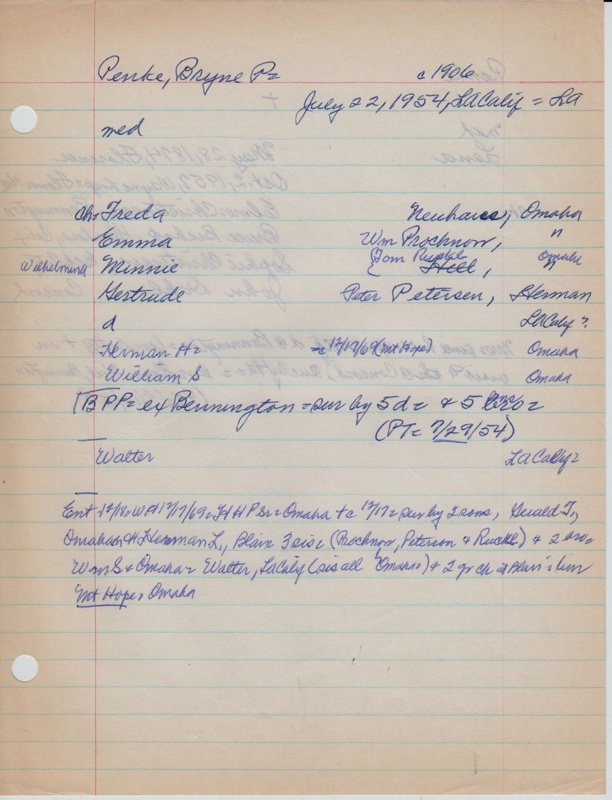 Penke, Bryne P= c1906
July 22, 1954, LA Calif = LA
med
ch. Freda Neuhaus, Omaha
Emma Wm Procknow, "
Wilhelmina Minnie Tom Ruckle, Omaha
Gertrude Peter Petersen, Herman
d LA Calif ?
Herman H= 12/17/69 (Mt Hope) Omaha
William S Omaha
BPP= ex Bennington = sur by 5 d= & 5 bro=
(PT= 7/29/54)
Walter LA Calif=
Ent WH 12/17/69= HHP Sr= Omaha 12/17= sur by 2 sons, Gerald T,
Omaha & Herman L., Blair 3 sis (Procknow, Peterson & Ruckle) & 2 bro=
Wm S Omaha= Walter, LA Calif (sis all Omaha=) & 2 gr ch
Mt Hope, Omaha